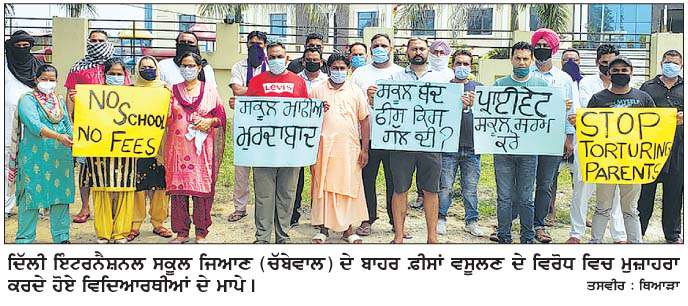 NO SCHOOL
NO FEES
LEVI'S
ਸਕੂਲ ਮਾਫੀਆ
ਮੁਰਦਾਬਾਦ
ਸਕੂਲ ਬੰਦ
ਫੀਸ ਕਿਸ
ਗੱਲ ਦੀ ?
ਪ੍ਰਾਈਵੇਟ
ਸਕੂਲ ਸ਼ਰਮ
ਕਰੋ
STOP
TORTURING
PARENTS
ਦਿੱਲੀ ਇੰਟਰਨੈਸ਼ਨਲ ਸਕੂਲ ਜਿਆਣ (ਚੱਬੇਵਾਲ) ਦੇ ਬਾਹਰ ਫ਼ੀਸਾਂ ਵਸੂਲਣ ਦੇ ਵਿਰੋਧ ਵਿਚ ਮੁਜ਼ਾਹਰਾ
ਕਰਦੇ ਹੋਏ ਵਿਦਿਆਰਥੀਆਂ ਦੇ ਮਾਪੇ।
ਤਸਵੀਰ : ਥਿਆੜਾ